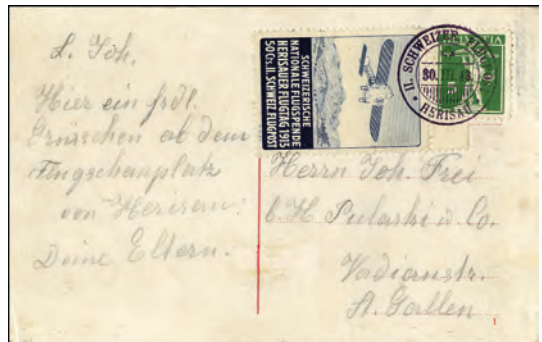 L. Joh,
Hier ein frdl.
Grüsschen ab dem
Flugschauplatz
von Herisau:
Deine Eltern.
SCHWEIZERISCHE
NATIONALE FLUGSPENDE
HERISAUER FLUGTAG 1913
50 Cts. II. SCHWEIZ. FLUGPOST
HELVETIA
II. SCHWEIZER. FLUGPO
30. III. 13.
HERISAU
Herrn Joh. Frei
b. H Pulaski & Co.
Vadianstr.
St. Gallen
1